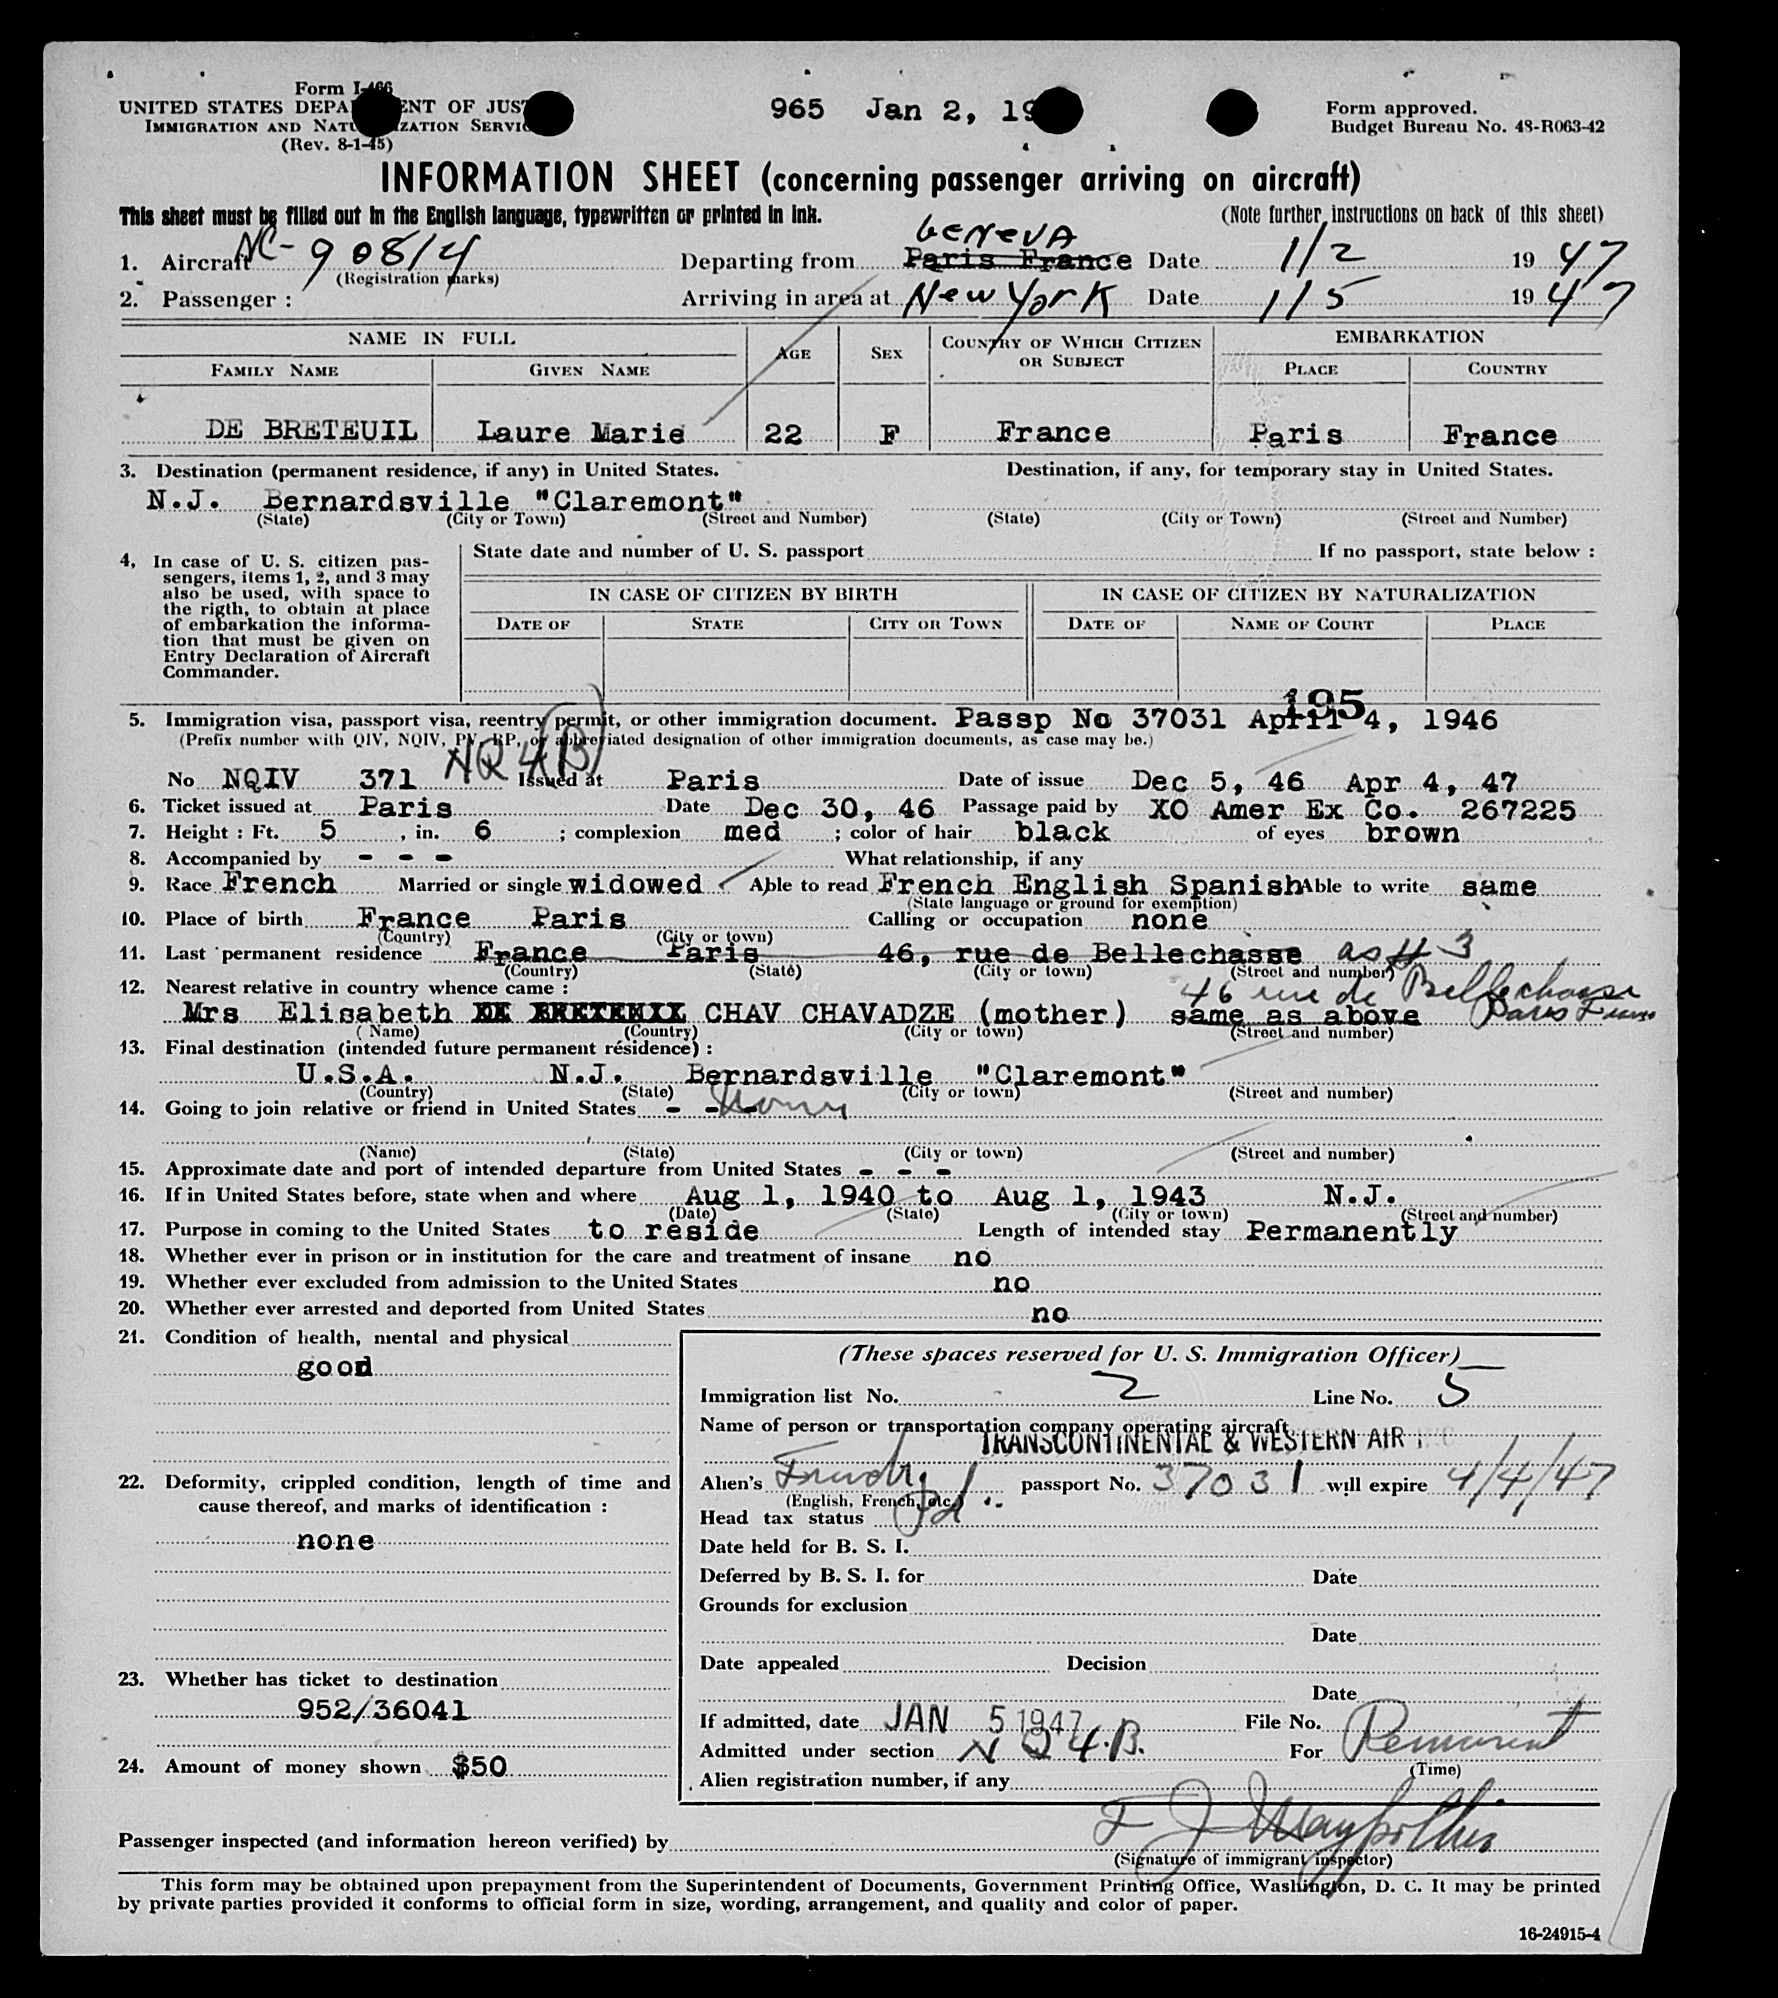 Form I-466
UNITED STATES DEPA ENT OF JUS
IMMIGRATION AND NATU IZATION SERVIC
(Rev. 8-1-45)
965 Jan 2, 19
Form approved.
Budget Bureau No. 43-R063-42
INFORMATION SHEET (concerning passenger arriving on aircraft)
This sheet must be filled out in the English language, typewritten or printed in ink.
(Note further instructions on back of this sheet)
GENEVA
1. Aircraft NC-90814 Departing from Paris France Date 1/2 1947
(Registration marks)
2. Passenger : Arriving in area at New York Date 1/5 1947
NAME IN FULL AGE SEX COUNTRY OF WHICH CITIZEN OR SUBJECT EMBARKATION
FAMILY NAME GIVEN NAME PLACE COUNTRY
DE BRETEUIL Laure Marie 22 F France Paris France
3. Destination (permanent residence, if any) in United States. Destination, if any, for temporary stay in United States.
N.J. Bernardsville "Claremont"
(State) (City or Town) (Street and Number) (State) (City or Town) (Street and Number)
4, In case of U. S. citizen pas-
sengers, items 1, 2, and 3 may
also be used, with space to
the rigth, to obtain at place
of embarkation the informa-
tion that must be given on
Entry Declaration of Aircraft
Commander.
State date and number of U. S. passport If no passport, state below :
IN CASE OF CITIZEN BY BIRTH IN CASE OF CITIZEN BY NATURALIZATION
DATE OF STATE CITY OR TOWN DATE OF NAME OF COURT PLACE
195
5. Immigration visa, passport visa, reentry permit, or other immigration document. Passp No 37031 April 4, 1946
(Prefix number with QIV, NQIV, PV, RP, or abbreviated designation of other immigration documents, as case may be.)
NQ 4(B)
No NQIV 371 Issued at Paris Date of issue Dec 5, 46 Apr 4, 47
6. Ticket issued at Paris Date Dec 30, 46 Passage paid by XO Amer Ex Co. 267225
7. Height : Ft. 5 , in. 6 ; complexion med ; color of hair black of eyes brown
8. Accompanied by - - - What relationship, if any
9. Race French Married or single widowed Able to read French English Spanish Able to write same
(State language or ground for exemption)
10. Place of birth France Paris Calling or occupation none
(Country) (City or town)
11. Last permanent residence France Paris 46, rue de Bellechasse as # 3
(Country) (State) (City or town) (Street and number)
12. Nearest relative in country whence came : 46 rue de Bellechasse
Mrs Elisabeth CHAV CHAVADZE (mother) same as above Paris
(Name) (Country) (City or town) (Street and number)
13. Final destination (intended future permanent résidence) :
U.S.A. N.J. Bernardsville "Claremont"
(Country) (State) (City or town) (Street and number)
14. Going to join relative or friend in United States - - -
(Name) (State) (City or town) (Street and number)
15. Approximate date and port of intended departure from United States - - -
16. If in United States before, state when and where Aug 1, 1940 to Aug 1, 1943 N.J.
(Date) (State) (City or town) (Street and number)
17. Purpose in coming to the United States to reside Length of intended stay Permanently
18. Whether ever in prison or in institution for the care and treatment of insane no
19. Whether ever excluded from admission to the United States no
20. Whether ever arrested and deported from United States no
21. Condition of health, mental and physical
good
22. Deformity, crippled condition, length of time and
cause thereof, and marks of identification :
none
23. Whether has ticket to destination
952/36041
24. Amount of money shown $50
(These spaces reserved for U. S. Immigration Officer)
Immigration list No. 2 Line No. 5
Name of person or transportation company operating aircraft
TRANSCONTINENTAL & WESTERN AIR INC
Alien's French passport No. 37031 will expire 4/4/47
(English, French, etc.)
Head tax status Pd
Date held for B. S. I.
Deferred by B. S. I. for Date
Grounds for exclusion
Date
Date appealed Decision
Date
If admitted, date JAN 5 1947 File No.
Admitted under section NQ4.B. For Permanent
(Time)
Alien registration number, if any
Passenger inspected (and information hereon verified) by
(Signature of immigrant inspector)
This form may be obtained upon prepayment from the Superintendent of Documents, Government Printing Office, Washington, D. C. It may be printed
by private parties provided it conforms to official form in size, wording, arrangement, and quality and color of paper.
16-24915-4